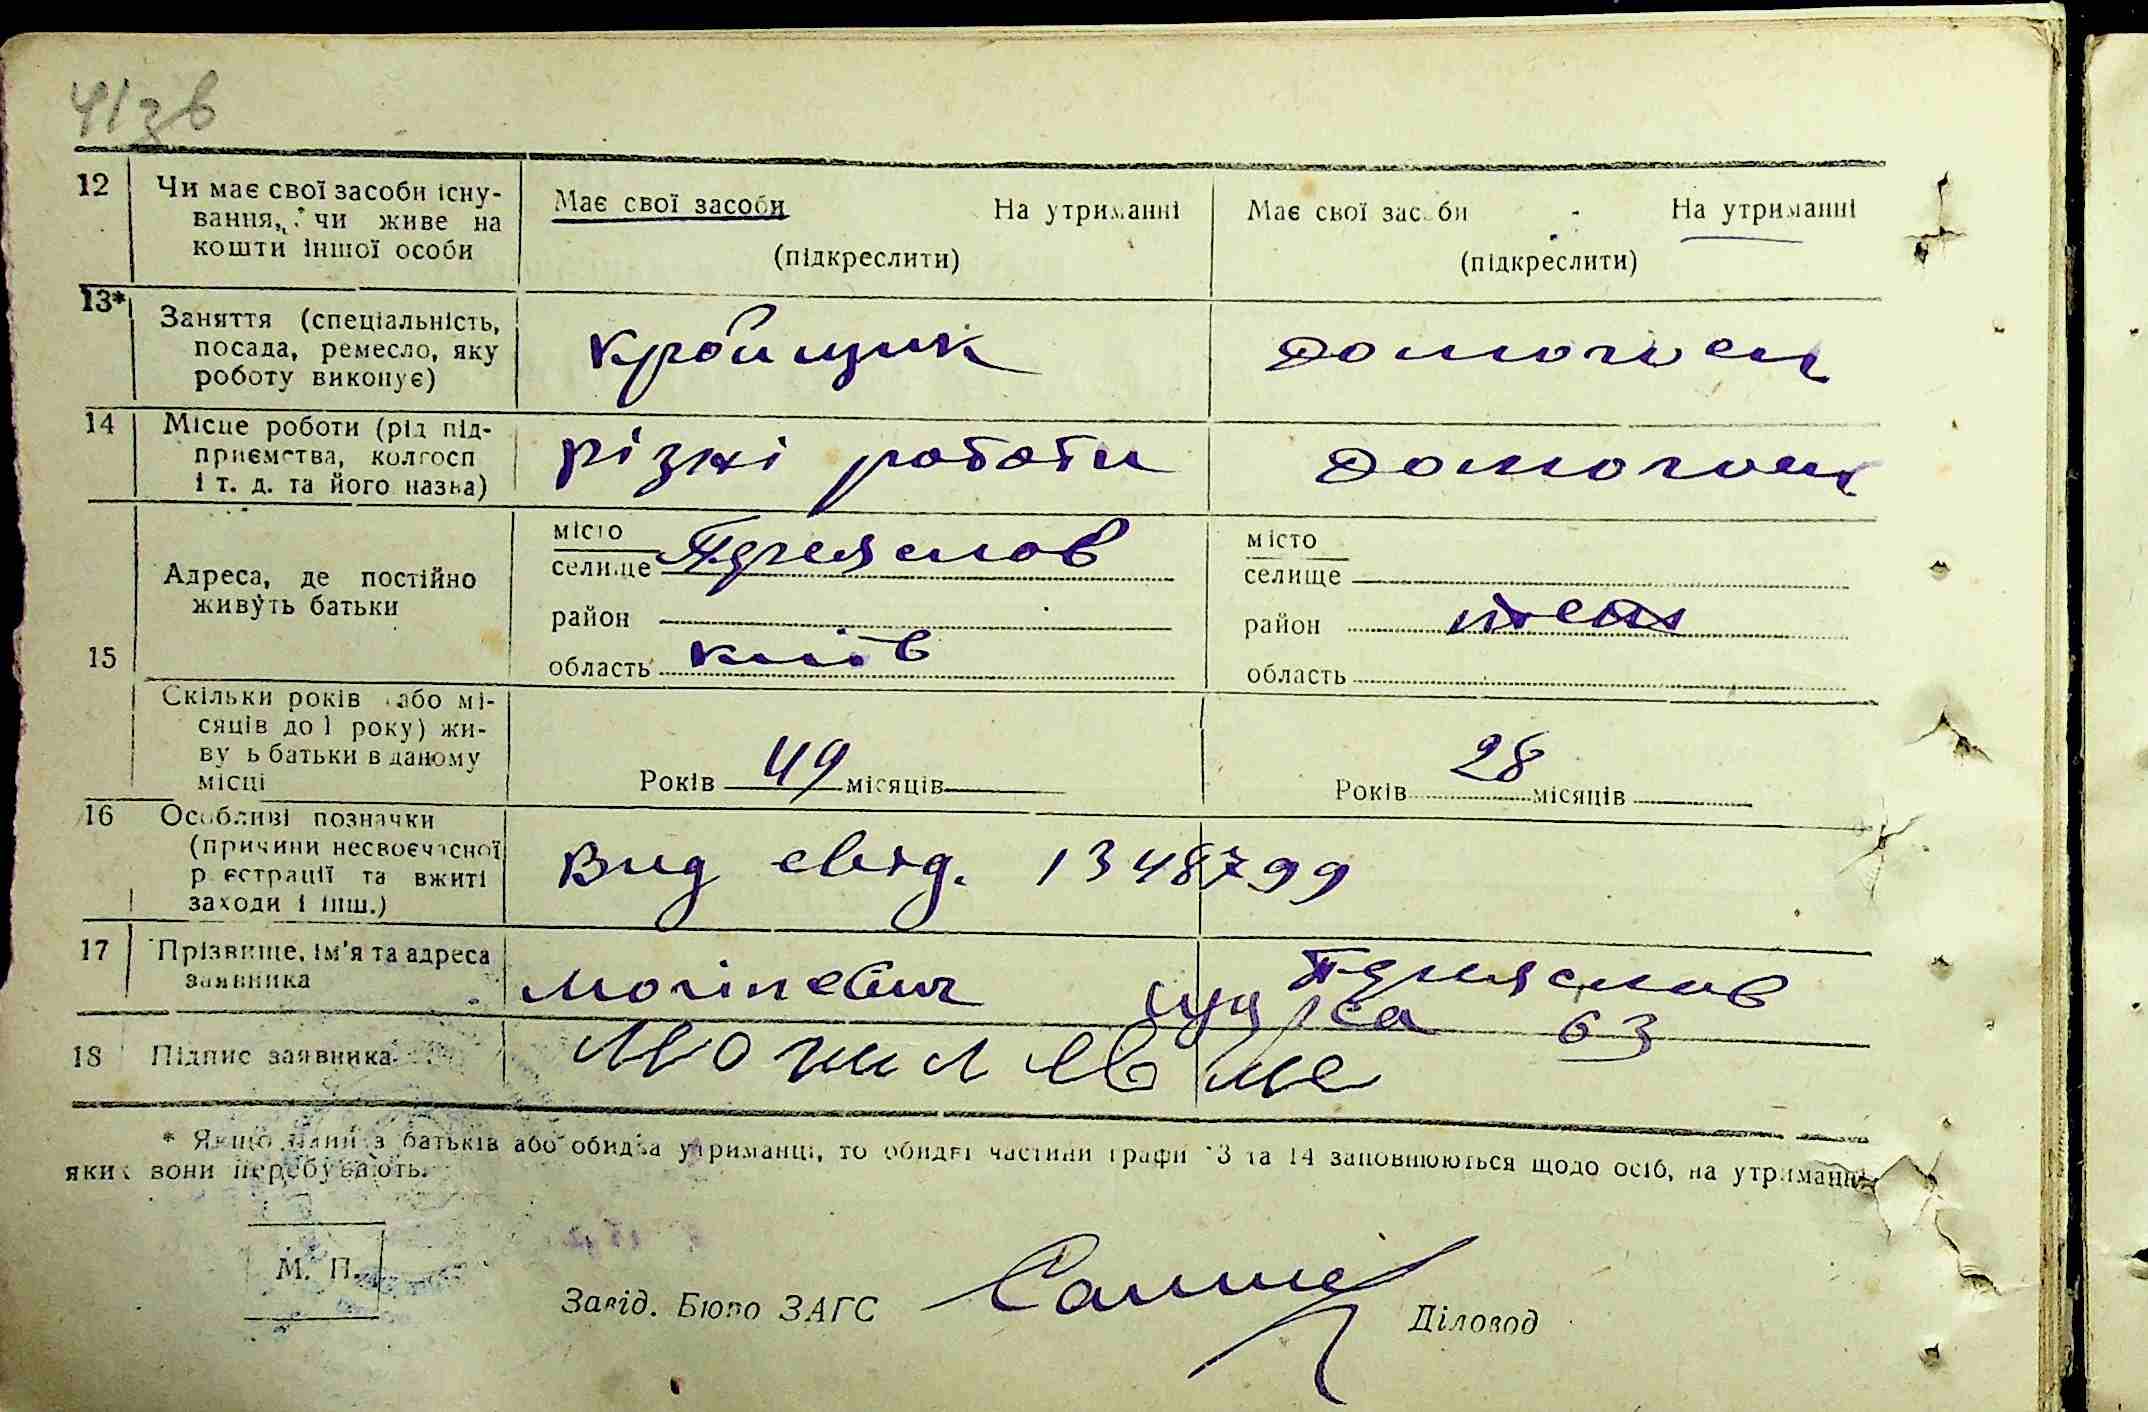 41зв
12 Чи має свої засоби існу-
вання, чи живе на
кошти іншої особи
Має свої засоби На утриманні
(підкреслити)
Має свої засоби На утриманні
(підкреслити)
13* Заняття (спеціальність,
посада, ремесло, яку
роботу виконує)
кройщик
домогосп
14 Місце роботи (рід під-
приємства, колгосп
і т. д. та його назва)
різні роботи
домогосп
15
Адреса, де постійно
живуть батьки
місто
селище Переяслов
район
область київ
місто
селище
район
область
Скільки років або мі-
сяців до 1 року) жи-
ву ь батьки в даному
місці
Років 49 місяців
Років 28 місяців
16 Особливі позначки
(причини несвоєчасної
реєстрації та вжиті
заходи і інш.)
Вид свід. 1348799
17 Прізвище, ім'я та адреса
заявника
Могілевич Переяслов
63
18 Підпис заявника
* Якщо один з батьків або обидва утриманці, то обидві частини графи 13 та 14 заповнюються щодо осіб, на утриманні
яких вони перебувають.
М. П.
Завід. Бюро ЗАГС Діловод